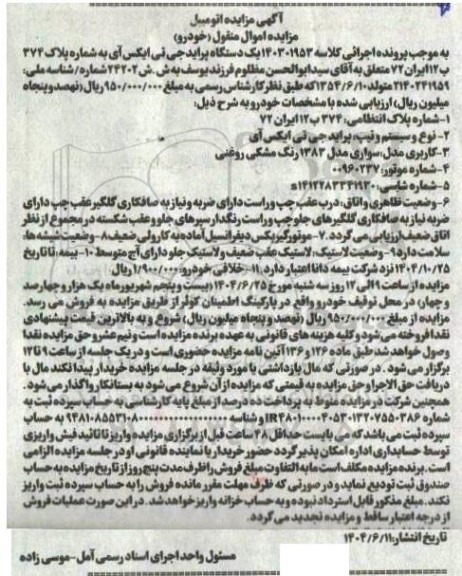 آگهی مزایده اتومبیل
مزایده اموال منقول (خودرو)
به موجب پرونده اجرائی کلاسه ۱۴۰۳۰۱۹۵۳ یک دستگاه پراید جی تی ایکس آی به شماره پلاک ۳۷۴
ب ۱۲ ایران ۷۲ متعلق به آقای سیدابوالحسن مظلوم فرزند یوسف به ش.ش ۲۴۲۰۲ شماره/شناسه ملی:
۲۱۴۰۲۴۱۹۵۹ متولد ۱۳۵۴/۶/۱۰ که طبق نظر کارشناس رسمی به مبلغ ۹۵۰/۰۰۰/۰۰۰ ریال (نهصد و پنجاه
میلیون ریال) ارزیابی شده با مشخصات خودرو به شرح ذیل:
۱-شماره پلاک انتظامی: ۳۷۴ ب ۱۲ ایران ۷۲
۲- نوع و سیستم و تیپ: پراید جی تی ایکس آی
۳-کاربری مدل: سواری مدل ۱۳۸۳ رنگ مشکی روغنی
۴-شماره موتور: ۰۰۹۶۰۲۳۷
۵-شماره شاسی: s۱۴۱۲۲۸۳۳۴۱۹۳۰
۶-وضعیت ظاهری و اتاق: درب عقب چپ و راست دارای ضربه و نیاز به صافکاری گلگیر عقب چپ دارای
ضربه نیاز به صافکاری گلگیرهای جلو چپ و راست رنگ دار سپرهای جلو و عقب شکسته در مجموع از نظر
اتاق ضعیف ارزیابی می گردد. ۷-موتور گیربکس دیفرانسیل آماده به کار ولی ضعیف ۸-وضعیت شیشه ها:
سلامت دارد ۹-وضعیت لاستیک: لاستیک عقب ضعیف و لاستیک جلو دارای آج متوسط ۱۰-بیمه: تا تاریخ
۱۴۰۴/۱۰/۲۵ نزد شرکت بیمه دانا اعتبار دارد. ۱۱-خلافی خودرو: ۱/۹۰۰/۰۰۰ ریال
مزایده از ساعت ۹ الی ۱۲ روز سه شنبه مورخ ۱۴۰۴/۶/۲۵ (بیست و پنجم شهریور ماه یک هزار و چهارصد
و چهار) در محل توقیف خودرو واقع در پارکینگ اطمینان کوثر از طریق مزایده به فروش می رسد.
مزایده از مبلغ ۹۵۰/۰۰۰/۰۰۰ ریال (نهصد و پنجاه میلیون ریال) شروع و به بالاترین قیمت پیشنهادی
نقدا فروخته می شود و کلیه هزینه های قانونی به عهده برنده مزایده است و نیم عشر و حق مزایده نقدا
وصول خواهد شد طبق ماده ۱۲۶ و ۱۳۶ آئین نامه مزایده حضوری است و در یک جلسه از ساعت ۹ تا ۱۲
برگزار می شود. در صورتی که مال بازداشتی یا مورد وثیقه در جلسه مزایده خریدار پیدا نکند مال با
دریافت حق الاجرا و حق مزایده به قیمتی که مزایده از آن شروع می شود به بستانکار واگذار می شود.
همچنین شرکت در مزایده منوط به پرداخت ده درصد از مبلغ پایه کارشناسی به حساب سپرده ثبت به
شماره و شناسه به حساب
سپرده ثبت می باشد که می بایست حداقل ۴۸ ساعت قبل از برگزاری مزایده واریز تا تائید فیش واریزی
توسط حسابداری اداره امکان پذیر گردد حضور خریدار یا نماینده قانونی او در جلسه مزایده الزامی
است. برنده مزایده مکلف است مابه التفاوت مبلغ فروش را ظرف مدت پنج روز از تاریخ مزایده به حساب
صندوق ثبت تودیع نماید و در صورتی که ظرف مهلت مقرر مانده فروش را به حساب سپرده ثبت واریز
نکند، مبلغ مذکور قابل استرداد نبوده و به حساب خزانه واریز خواهد شد. در این صورت عملیات فروش
از درجه اعتبار ساقط و مزایده تجدید می گردد.
تاریخ انتشار: ۱۴۰۴/۶/۱۱
مسئول واحد اجرای اسناد رسمی آمل-موسی زاده